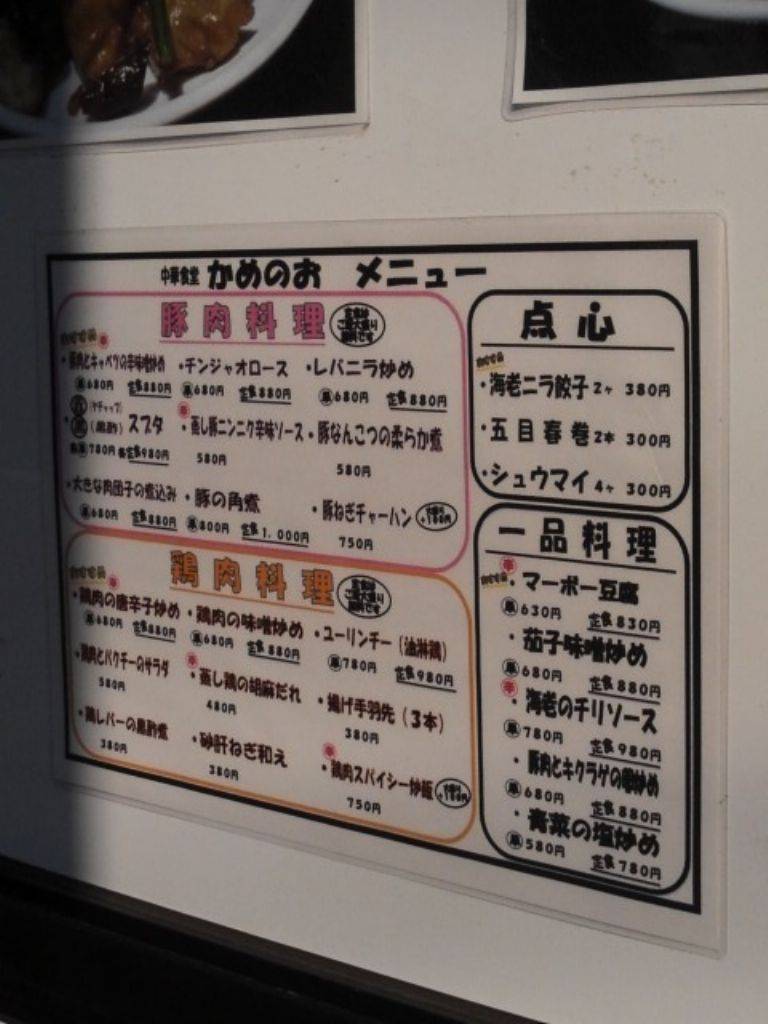 中華食堂 かめのお メニュー
豚肉料理
定食は ご飯大盛り 無料です
おすすめ 辛
・豚肉とキャベツの辛味噌炒め ・チンジャオロース ・レバニラ炒め
単680円 定食880円 単680円 定食880円 単680円 定食880円
(ケチャップ)
・黒(黒酢) スブタ 辛・蒸し豚ニンニク辛味ソース ・豚なんこつの柔らか煮
780円 定食980円 580円 580円
・大きな肉団子の煮込み ・豚の角煮 ・豚ねぎチャーハン 大盛り+100円
単680円 定食880円 単800円 定食1,000円 750円
鶏肉料理
定食は ご飯大盛り 無料です
おすすめ 辛
・鶏肉の唐辛子炒め ・鶏肉の味噌炒め ・ユーリンチー(油淋鶏)
単680円 定食880円 単680円 定食880円 単780円 定食980円
・鶏肉とパクチーのサラダ 辛・蒸し鶏の胡麻だれ ・揚げ手羽先(3本)
580円 480円 380円
・鶏レバーの黒酢煮 ・砂肝ねぎ和え 辛・鶏肉スパイシー炒飯 大盛り+100円
380円 380円 750円
点心
おすすめ
・海老ニラ餃子2ヶ 380円
・五目春巻2本 300円
・シュウマイ4ヶ 300円
一品料理
おすすめ 辛・マーボー豆腐
単630円 定食830円
・茄子味噌炒め
単680円 定食880円
辛・海老のチリソース
単780円 定食980円
・豚肉とキクラゲの卵炒め
単680円 定食880円
・青菜の塩炒め
単580円 定食780円